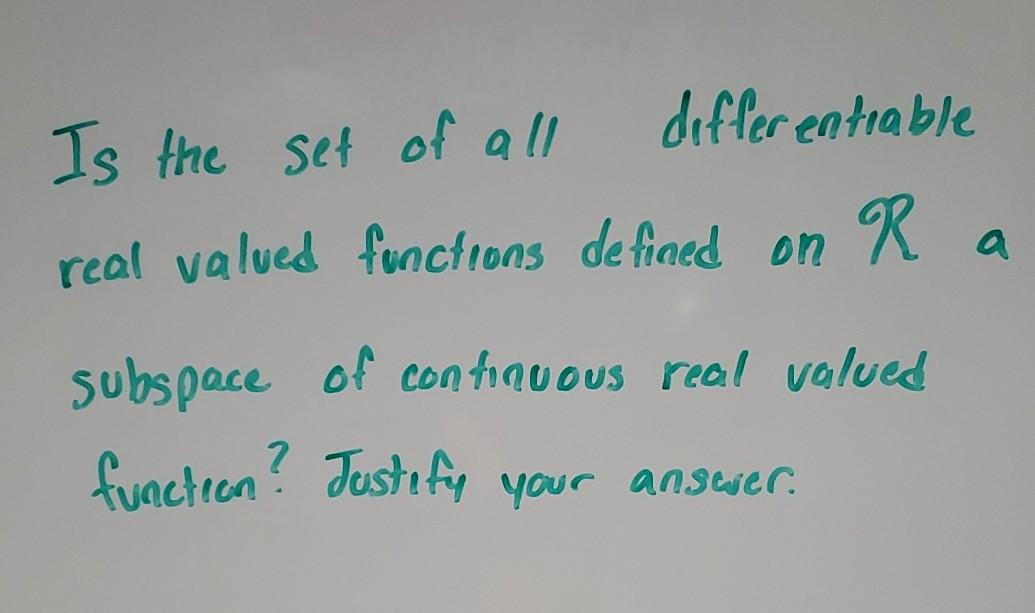 Is the set of all differentiable
real valued functions defined on ℛ a
subspace of continuous real valued
function? Justify your answer.